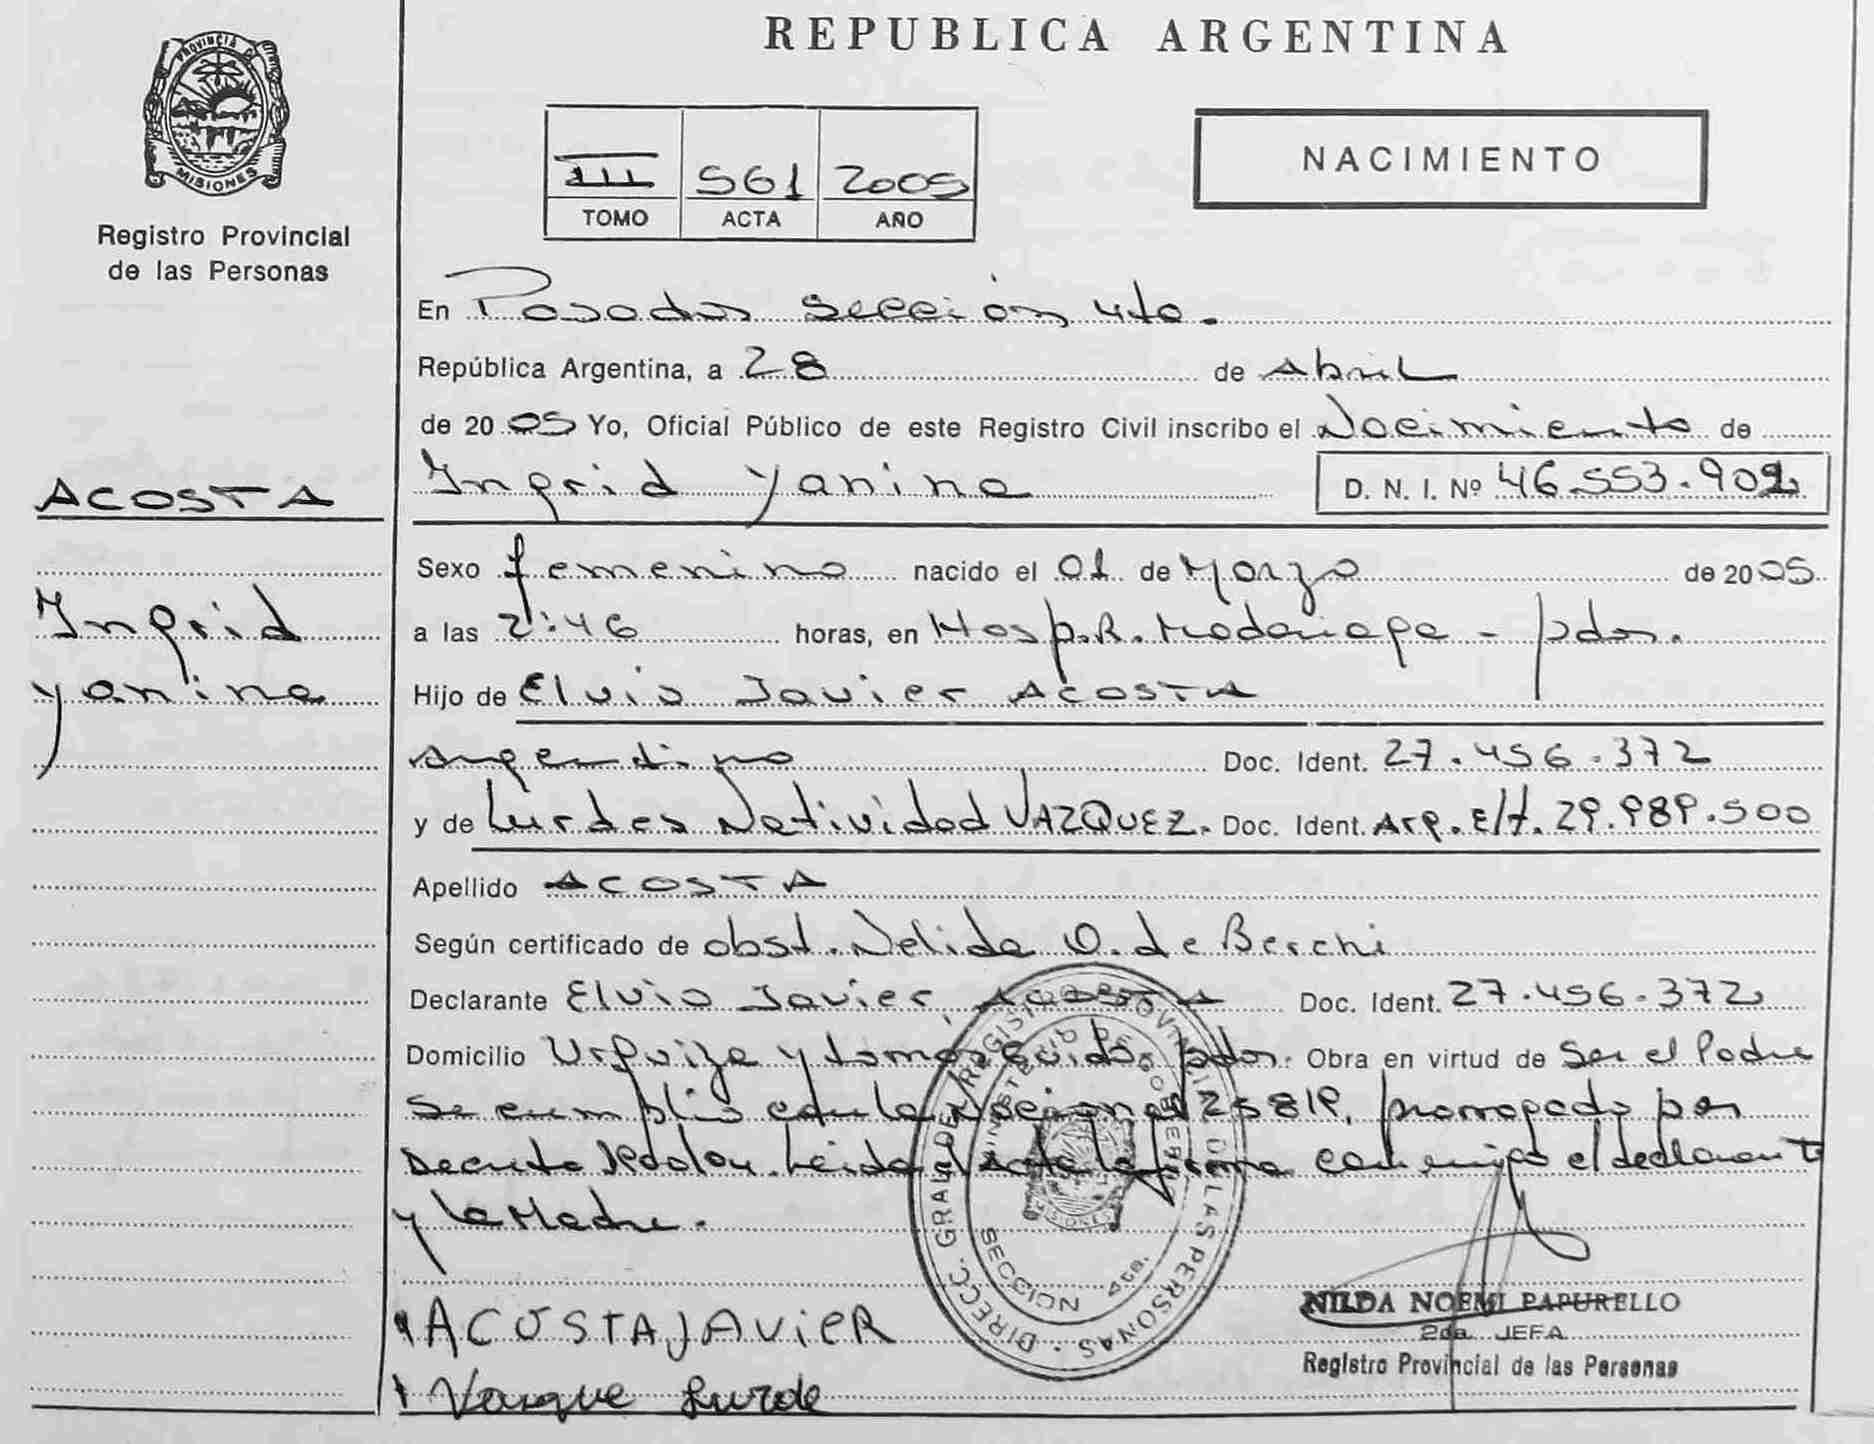 REPUBLICA ARGENTINA
PROVINCIA DE
MISIONES
Registro Provincial
de las Personas
III 561 2005
TOMO ACTA AÑO
NACIMIENTO
En Posadas sección 4ta.
República Argentina, a 28 de Abril
de 2005 Yo, Oficial Público de este Registro Civil inscribo el Nacimiento de
Ingrid Yanina D. N. I. Nº 46.553.902
ACOSTA
Ingrid
Yanina
Sexo femenino nacido el 01 de Marzo de 2005
a las 2:46 horas, en Hosp. R. Madariaga - pdas.
Hijo de Elvio Javier ACOSTA
argentino Doc. Ident. 27.456.372
y de Lurdes Natividad VAZQUEZ. Doc. Ident. Arg. 29.989.500
Apellido ACOSTA
Según certificado de obst. Nelida O. de Berchi
Declarante Elvio Javier ACOSTA Doc. Ident. 27.456.372
Domicilio Urquiza y tomas Guido. pdas. Obra en virtud de Ser el Padre
Se cumplio con la Nacional 25819, prorrogado por
Decreto Leida el Acta la firma conmigo el declarante
y la Madre.
DIRECC. GRAL. DEL REGISTRO PROVINCIAL DE LAS PERSONAS
MINISTERIO DE GOBIERNO
MISIONES
SECCION 4ta.
ACOSTA JAVIER
Vasque Lurde
NILDA NOEMI PAPURELLO
2da. JEFA
Registro Provincial de las Personas